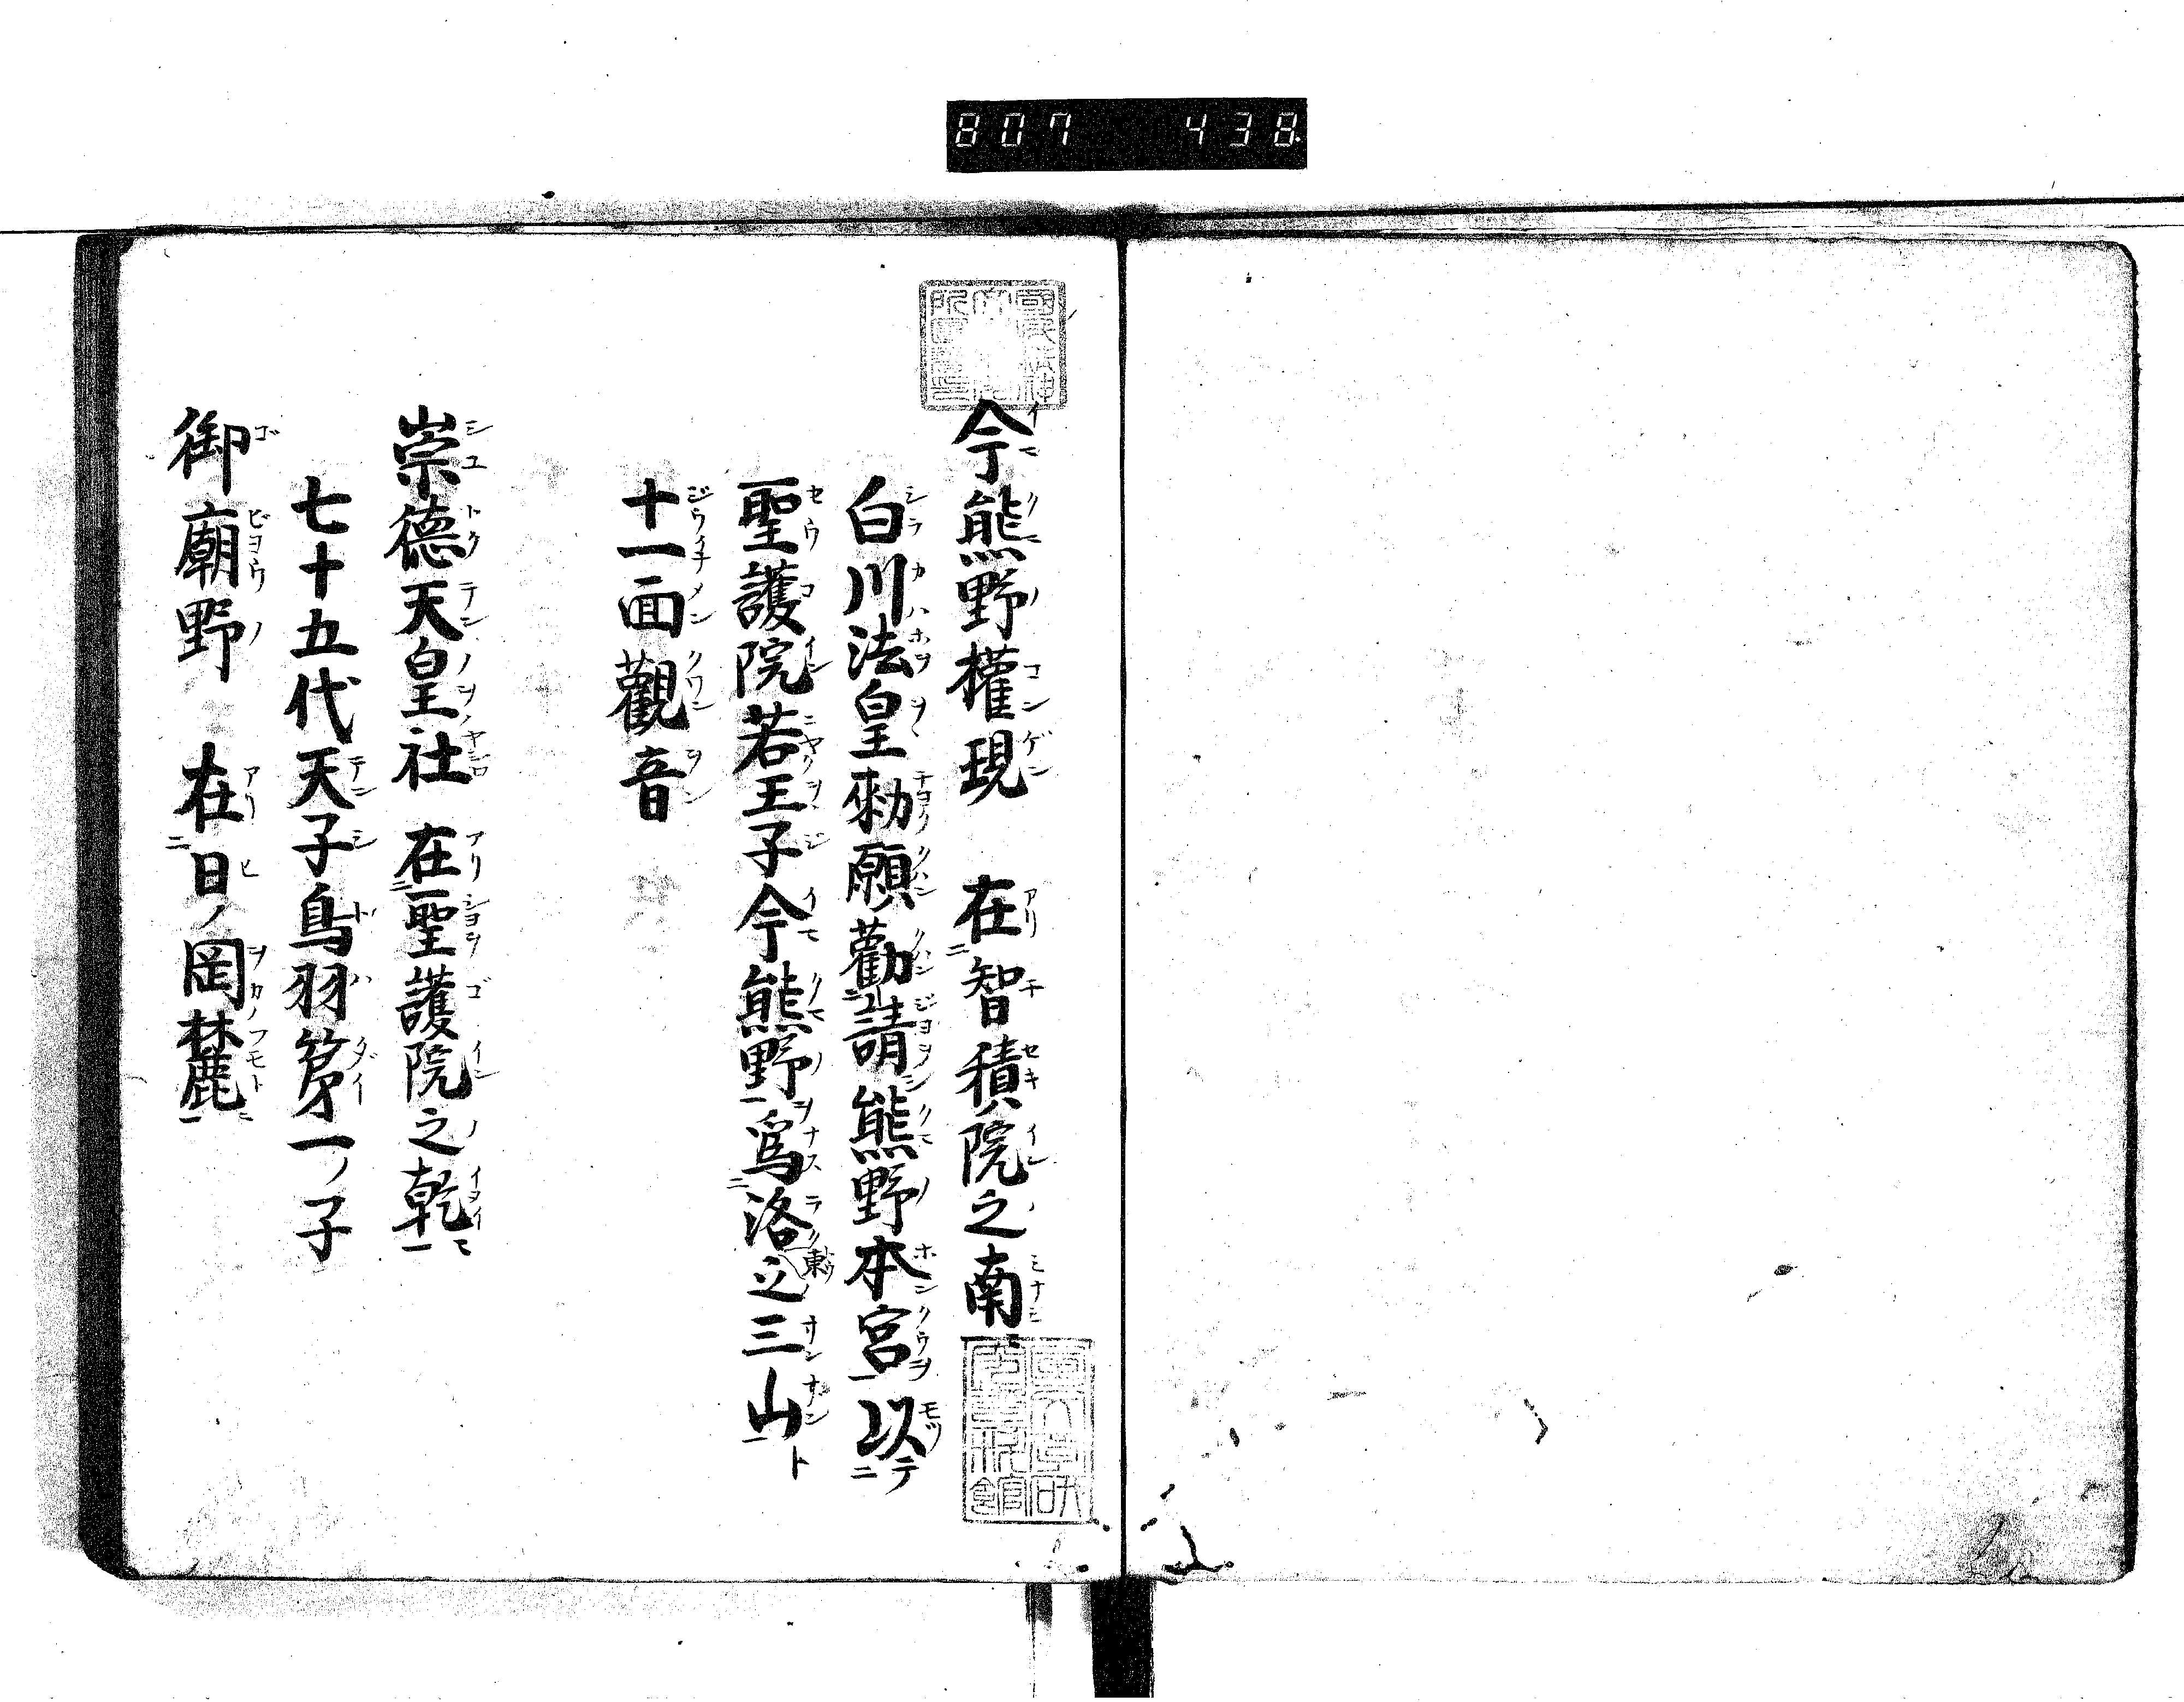 807 438
今熊野權現 在智積院之南
白川法皇勅願勸請熊野本宮以
聖護院若王子今熊野爲洛東之三山
十一面觀音
崇德天皇社 在聖護院之乾
七十五代天子鳥羽第一ノ子
御廟野 在日ノ岡麓